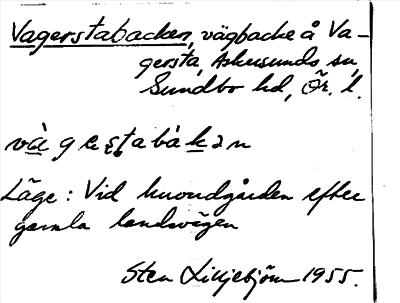 Vagerstabacken, vägbacke å Va-
gersta, Askersunds sn,
Sundbo hd, Ör. l.
Läge: Vid huvudgården efter
gamla landsvägen
Sten Liljebjörn 1955.